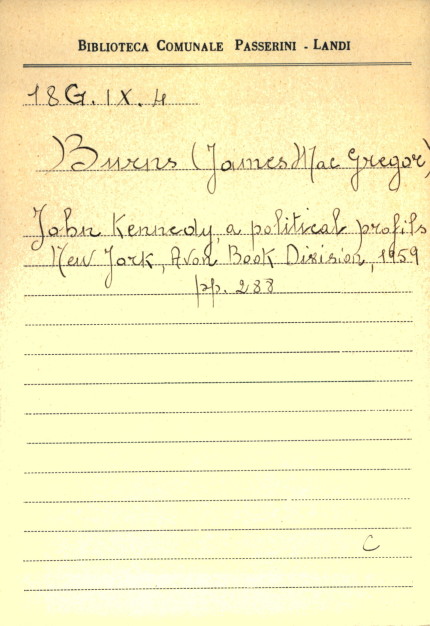 BIBLIOTECA COMUNALE PASSERINI - LANDI
18 G. IX. 4
Burns (James Mac Gregor)
John Kennedy, a political profils
New York, Avon Book Division, 1959
pp. 288
C